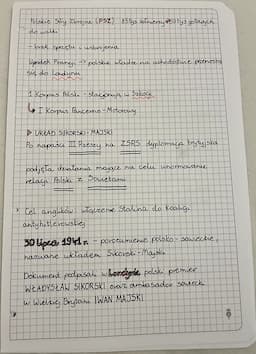 Polskie Siły Zbrojne (PSZ)
do walki
- brak sprzętu i uzbrojenia
Upadek Francji -> polskie władze na uchodźstwie przenoszą
się do Londynu
1 Korpus Polski - stacjonuje w Szkocji
↳ I Korpus Pancerno-Motorowy
▷ UKŁAD SIKORSKI-MAJSKI
Po napaści III Rzeszy na ZSRS dyplomacja brytyjska
podjęła działania mające na celu unormowanie
relacji Polski z Sowietami
Cel anglików: włączenie Stalina do koalicji
antyhitlerowskiej
30 lipca 1941 r. - porozumienie polsko-sowieckie,
nazwane układem Sikorski-Majski
Dokument podpisali w Londynie polski premier
WŁADYSŁAW SIKORSKI oraz ambasador sowiecki
w Wielkiej Brytanii IWAN MAJSKI